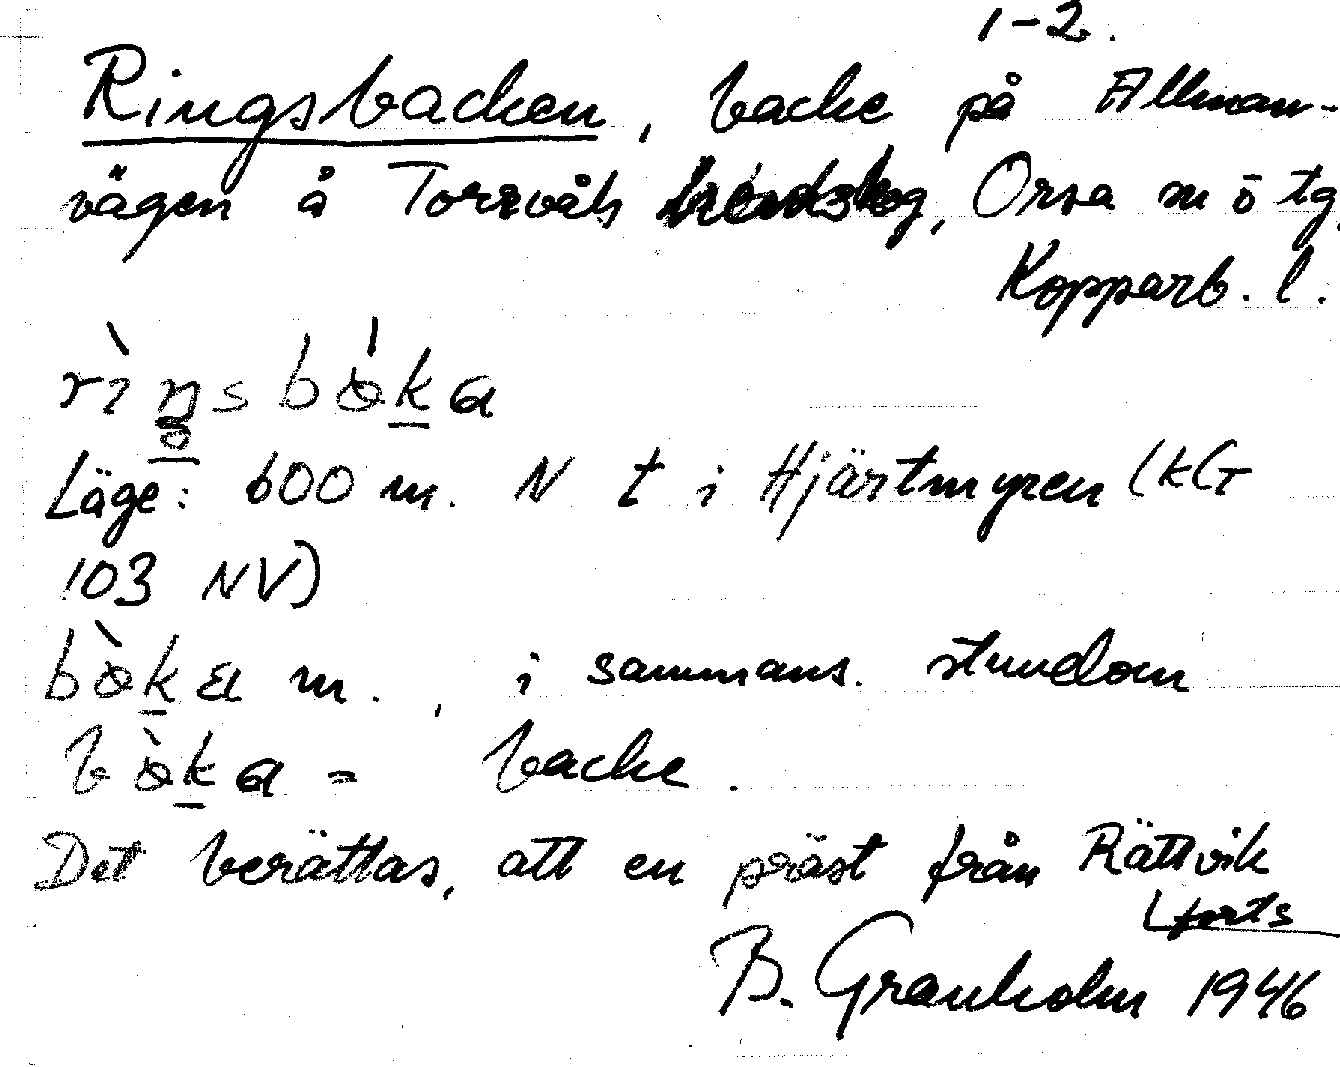 1-2.
Ringsbacken, backe på Allman-
vägen å Torrvåls kronoskog, Orsa sn ö tg,
Kopparb. l.
Läge: 600 m. N t i Hjärtmyren (KG
103 NV)
m., i sammans. stundom
= backe.
Det berättas, att en präst från Rättvik
forts
B. Granholm 1946